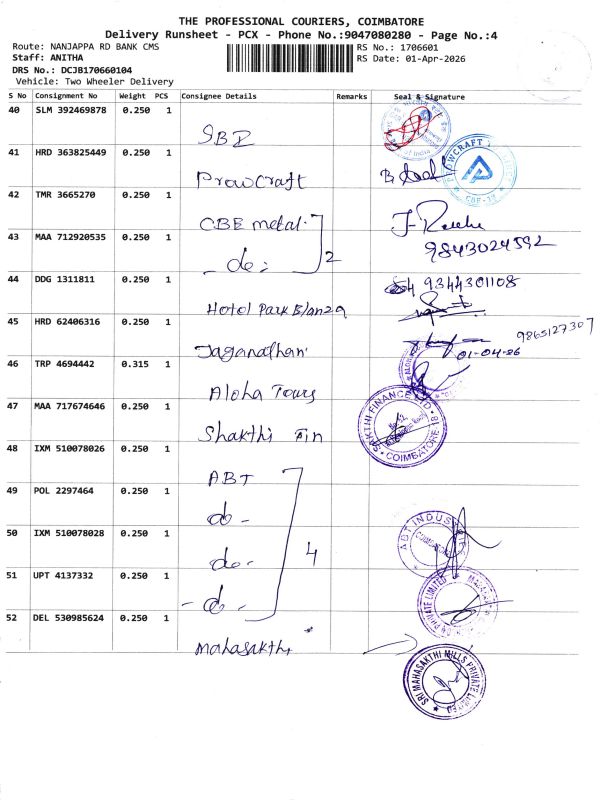 THE PROFESSIONAL COURIERS, COIMBATORE
Delivery Runsheet - PCX - Phone No.:9047080280 - Page No.:4
Route: NANJAPPA RD BANK CMS
RS No.: 1706601
Staff: ANITHA
RS Date: 01-Apr-2026
DRS No.: DCJB170660104
Vehicle: Two Wheeler Delivery
S No Consignment No Weight PCS Consignee Details Remarks Seal & Signature
40 SLM 392469878 0.250 1
SBI
41 HRD 363825449 0.250 1
ProwCraft
42 TMR 3665270 0.250 1
CBE metal.
43 MAA 712920535 0.250 1
9843024592
- do - 2
44 DDG 1311811 0.250 1
9344301108
Hotol Park Blanza
45 HRD 62406316 0.250 1
9865127307
Jaganathan
01-04-26
46 TRP 4694442 0.315 1
Aloha Tours
47 MAA 717674646 0.250 1
SAKTHI FINANCE LTD
COIMBATORE-18
Shakthi Fin
48 IXM 510078026 0.250 1
ABT
49 POL 2297464 0.250 1
do -
50 IXM 510078028 0.250 1
ABT INDUS
do - 4
51 UPT 4137332 0.250 1
PRIVATE LIMITED
- do -
52 DEL 530985624 0.250 1
mahasakthi
SRI MAHASAKTHI MILLS PRIVATE LIMITED